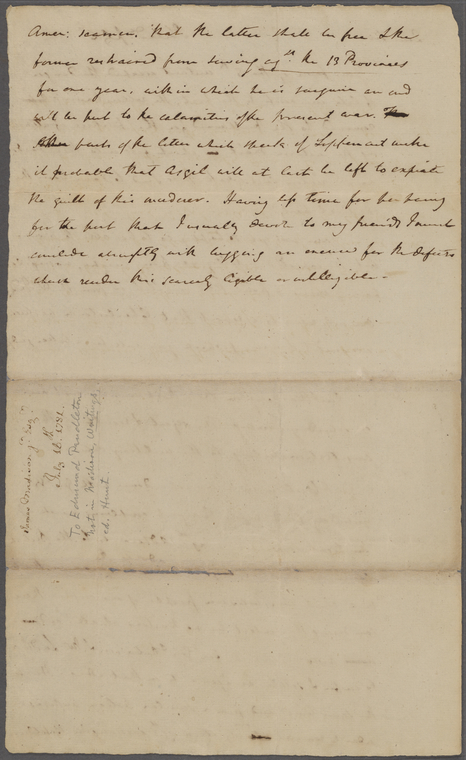 Amer: seamen, that the latter shall be free & the
former restrained from serving agst. the 13 Provinces
for one year, within which he is sanguine an end
will be put to the calamities of the present war. The
parts of the letter which speak of Lippencut make
it probable that Asgil will at last be left to expiate
the guilt of this murderer. Having less time for
for the post that I usually devote to my friends I must
conclude abruptly with begging an excuse for the defects
which render this scarcely legible or intelligible.
James Madison Jr. Esq
July 16th 1781.
To Edmund Pendleton
not in Madison Writings
ed. Hunt